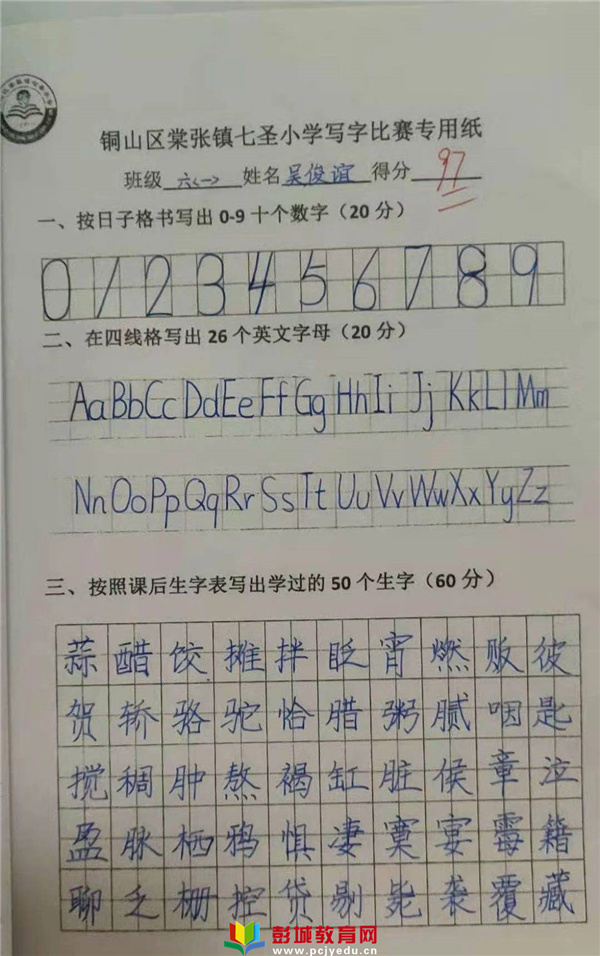 铜山区棠张镇七圣小学写字比赛专用纸
班级 六(一) 姓名 吴俊谊 得分 97
一、按日子格书写出 0-9 十个数字（20 分）
0 1 2 3 4 5 6 7 8 9
二、在四线格写出 26 个英文字母（20 分）
Aa Bb Cc Dd Ee Ff Gg Hh Ii Jj Kk Ll Mm
Nn Oo Pp Qq Rr Ss Tt Uu Vv Ww Xx Yy Zz
三、按照课后生字表写出学过的 50 个生字（60 分）
蒜 醋 饺 摊 拌 眨 宵 燃 贩 彼
贺 轿 骆 驼 恰 腊 粥 腻 咽 匙
搅 稠 肿 熬 褐 缸 脏 侯 章 泣
盈 脉 栖 鸦 惧 凄 寞 宴 霉 籍
聊 乏 栅 控 贷 剔 毙 袭 覆 藏
彭城教育网
www.pcjyedu.cn